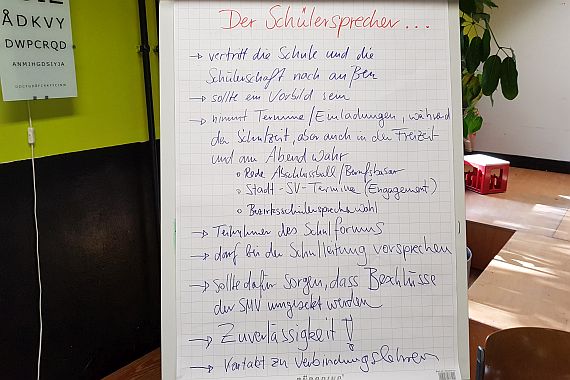 ÄDKVY
DWPCRQD
ANMIHGDSLYJA
Der Schülersprecher...
→ vertritt die Schule und die
Schülerschaft nach außen
→ sollte ein Vorbild sein
→ nimmt Termine/Einladungen, während
der Schulzeit, aber auch in der Freizeit
und am Abend wahr
o Rede Abschlussball/Berufsbasar
o Stadt-SV-Termine (Engagement)
o Bezirksschülersprecherwahl
→ Teilnehmer des Schulforums
→ darf bei der Schulleitung vorsprechen
→ sollte dafür sorgen, dass Beschlüsse
der SMV umgesetzt werden
→ Zuverlässigkeit!
→ Kontakt zu Verbindungslehrern